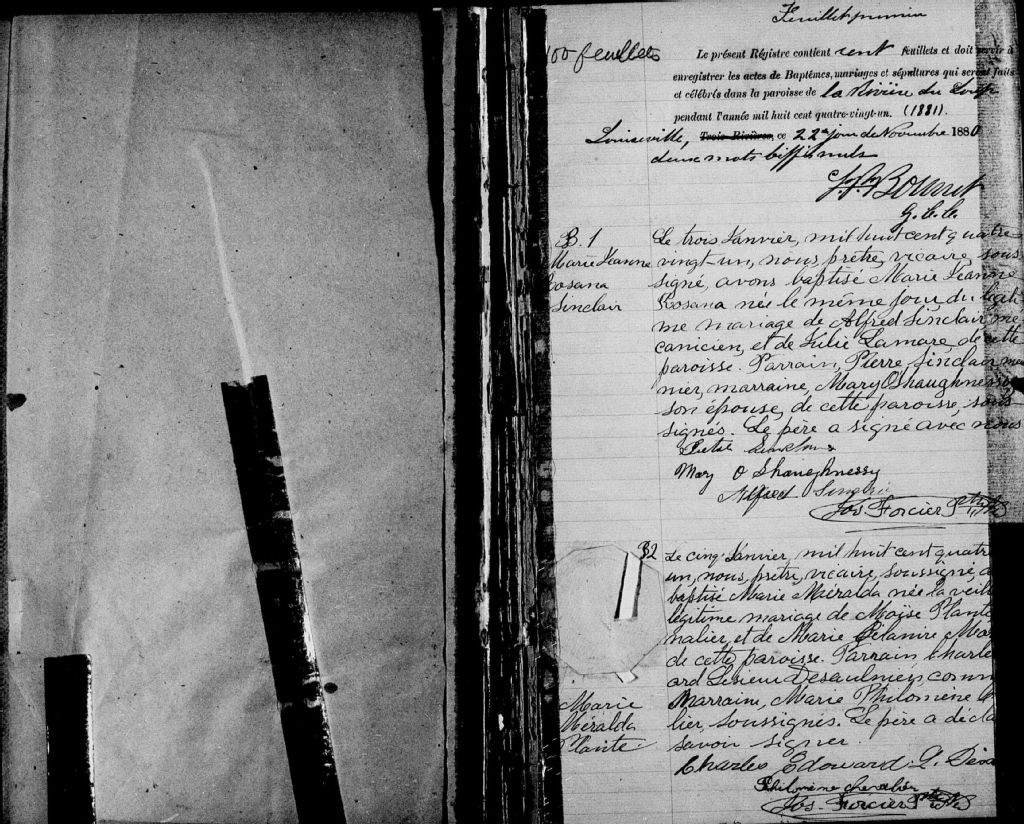 Feuillet premier
100 feuillets
Le présent Régistre contient cent feuillets et doit servir à
enregistrer les actes de Baptêmes, mariages et sépultures qui seront faits
et célébrés dans la paroisse de la Rivière du Loup
pendant l'année mil huit cent quatre-vingt-un. (1881).
Louiseville, Trois-Rivières, ce 22e jour de Novembre 1880
deux mots biffés nuls
G. C. C.
B. 1
Marie Jeanne
Rosana
Sinclair
Le trois Janvier, mil huit cent quatre
vingt-un, nous, prêtre, vicaire, sous
signé, avons baptisé Marie Jeanne
Rosana née le même jour, du légiti
me mariage de Alfred Sinclair, mé
canicien, et de Julie Lamare, de cette
paroisse. Parrain, Pierre Sinclair, me
nier, marraine, Mary O'Shaughnessy
son épouse, de cette paroisse, sous
signés. Le père a signé avec nous
Mary O Shaughnessy
Alfred
Jos. Forcier Ptre
B2
Marie
Méralda
Plante
Le cinq Janvier, mil huit cent quatre
un, nous, prêtre, vicaire, soussigné, a
baptisé Marie Méralda née la veille
légitime mariage de Moïse Plante
nalier, et de Marie Célanire Mar
de cette paroisse. Parrain, Charles
ard Lesieur Desaulniers, comm
Marraine, Marie Philomène
lier, soussignés. Le père a décla
savoir signer.
Charles Edouard L. Désa
Philomène Chevalier
Jos. Forcier Ptre